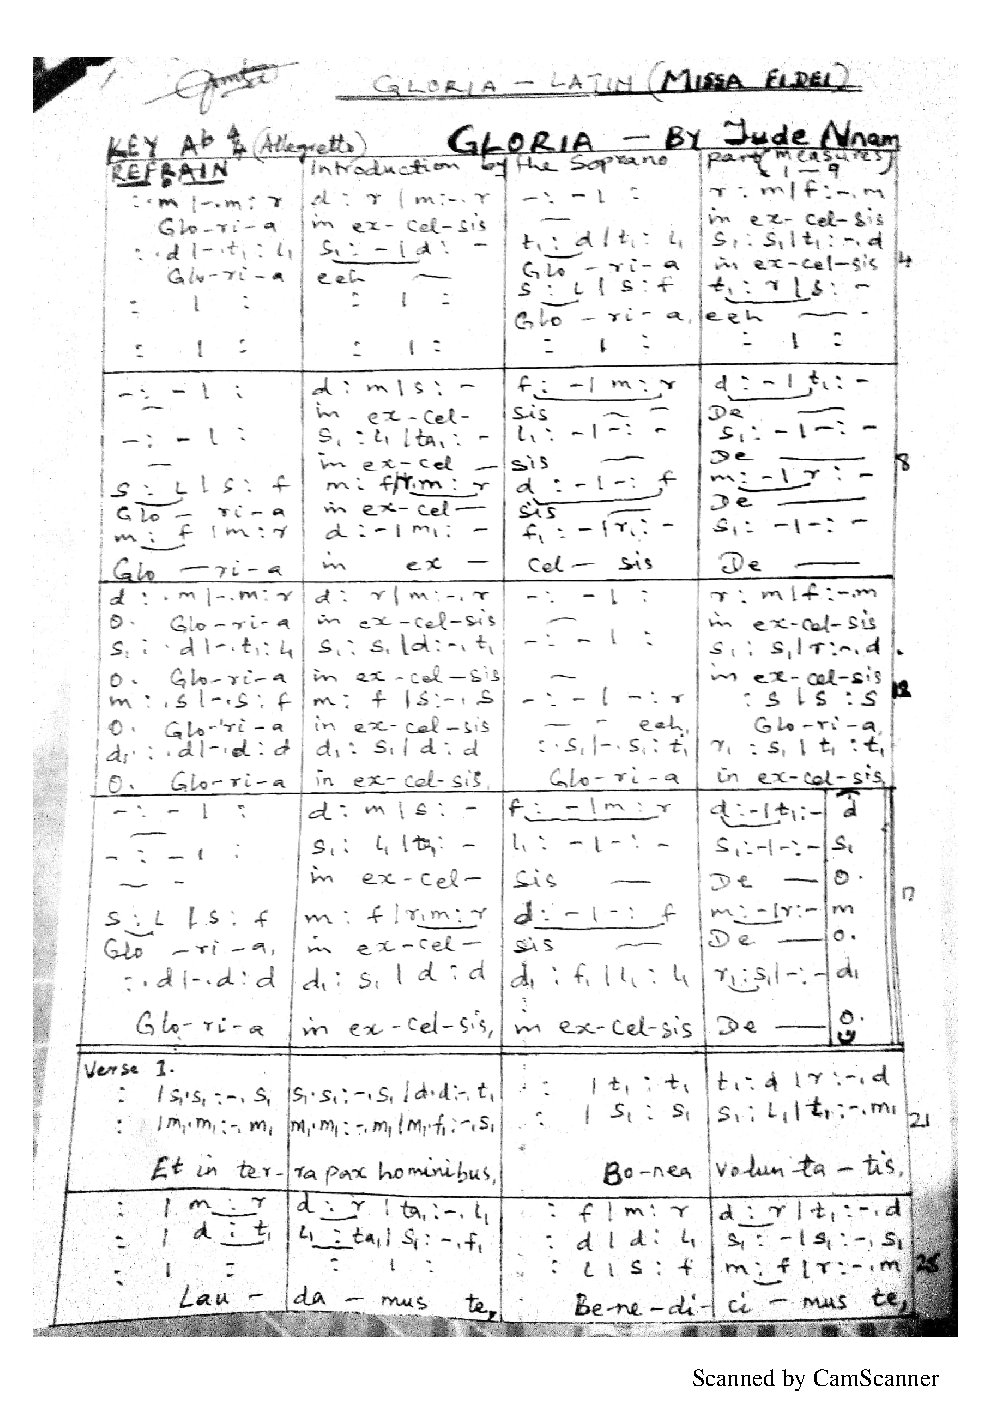 GLORIA - LATIN (MISSA FIDEI)
KEY Ab 4/4 (Allegretto) GLORIA - BY Jude Nnam
REFRAIN Introduction by the Soprano part (measures 1-9
: .m |-.m : r d : r | m :-. r - : - | : r : m | f :-. m
Glo-ri-a in ex-cel-sis — in ex-cel-sis
: .d |-.t₁ : l₁ s₁ : - | d : - t₁ : d | t₁ : l₁ s₁ : s₁ | t₁ :-. d
Glo-ri-a eeh — Glo - ri - a in ex-cel-sis 4
: | : : | : s : l | s : f t₁ : r | s : -
Glo - ri - a, eeh — -
: | : : | : : | : : | :
- : - | : d : m | s : - f : - | m : r d : - | t₁ : -
— in ex-cel- sis — - De —
- : - | : s₁ : l₁ | ta₁ : - l₁ : - | - : - s₁ : - | - : -
— in ex-cel — sis — De — 8
s : l | s : f m : f | r.m : r d : - | - : f m : - | r : -
Glo - ri-a in ex-cel— sis — De —
m : f | m : r d : - | m₁ : - f₁ : - | r₁ : - s₁ : - | - : -
Glo — ri-a in ex — cel— sis De —
d : .m |-.m : r d : r | m :-. r - : - | : r : m | f :-. m
O. Glo-ri-a in ex-cel-sis — in ex-cel-sis
s₁ : .d |-.t₁ : l₁ s₁ : s₁ | d :-. t₁ - : - | : s₁ : s₁ | r :-. d
O. Glo-ri-a in ex-cel-sis — in ex-cel-sis
m : .s |-.s : f m : f | s :-. s - : - | - : r : s | s : s 12
O. Glo-ri-a in ex-cel-sis — - eeh, Glo-ri-a,
d₁ : .d |-.d : d d₁ : s₁ | d : d : .s₁ |-.s₁ : t₁ r₁ : s₁ | t₁ : t₁
O. Glo-ri-a in ex-cel-sis, Glo-ri-a in ex-cel-sis,
- : - | : d : m | s : - f : - | m : r d : - | t₁ : - d
- : - | : s₁ : l₁ | ta₁ : - l₁ : - | - : - s₁ : - | - : - s₁
— - in ex-cel- sis — De — O.
s : l | s : f m : f | r.m : r d : - | - : f m : - | r : - m 17
Glo - ri-a, in ex-cel- sis — De — O.
: .d |-.d : d d₁ : s₁ | d : d d₁ : f₁ | l₁ : l₁ r₁ : s₁ | - : - d₁
Glo-ri-a in ex-cel-sis, in ex-cel-sis De — O.
Verse 1.
: | s₁.s₁ :-. s₁ s₁.s₁ :-. s₁ | d.d :-. t₁ : | t₁ : t₁ t₁ : d | r :-. d
: | m₁.m₁ :-. m₁ m₁.m₁ :-. m₁ | m₁.f₁ :-. s₁ : | s₁ : s₁ s₁ : l₁ | t₁ :-. m₁ 21
Et in ter-ra pax hominibus, Bo-nea volun ta-tis,
: | m : r d : r | ta₁ :-. l₁ : f | m : r d : r | t₁ :-. d
: | d : t₁ l₁ : ta₁ | s₁ :-. f₁ : d | d : l₁ s₁ : - | s₁ :-. s₁
: | : : | : : l | s : f m : f | r :-. m 25
Lau - da - mus te, Be-ne-di-ci - mus te,
Scanned by CamScanner